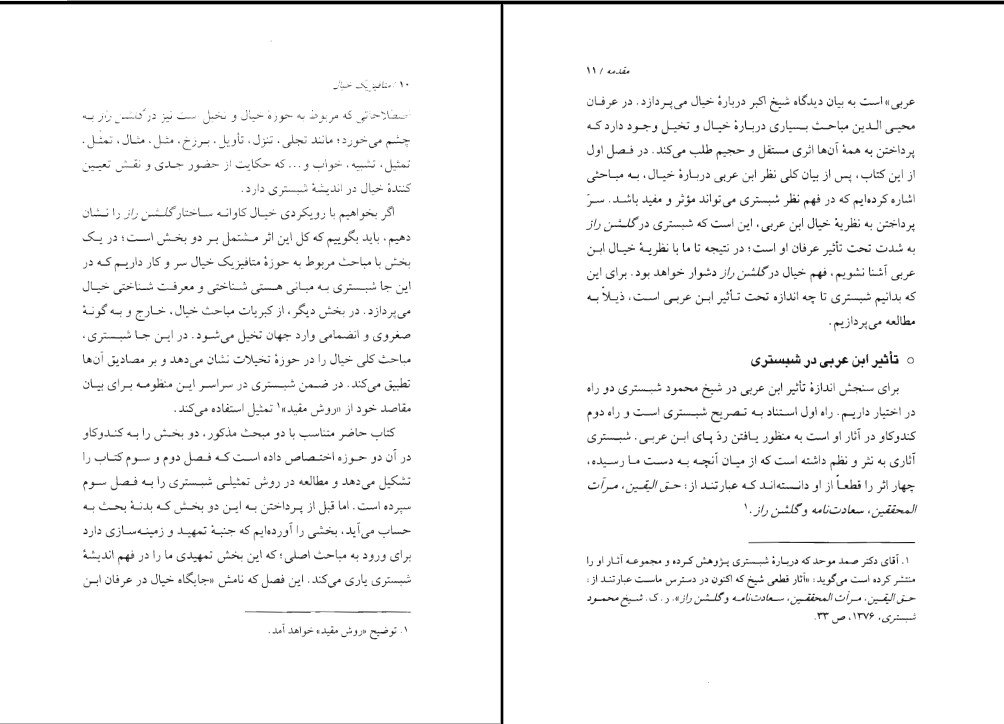 ۱۰ / متافیزیک خیال
اصطلاحاتی که مربوط به حوزهٔ خیال و تخیل است نیز در گلشن راز به
چشم می‌خورد؛ مانند تجلی، تنزل، تأویل، برزخ، مثل، مثال، تمثّل،
تمثیل، تشبیه، خواب و... که حکایت از حضور جدی و نقش تعیین
کنندهٔ خیال در اندیشهٔ شبستری دارد.
اگر بخواهیم با رویکردی خیال کاوانه ساختار گلشن راز را نشان
دهیم، باید بگوییم که کل این اثر مشتمل بر دو بخش است؛ در یک
بخش با مباحث مربوط به حوزهٔ متافیزیک خیال سر و کار داریم که در
این جا شبستری به مبانی هستی شناختی و معرفت شناختی خیال
می‌پردازد. در بخش دیگر، از کبریات مباحث خیال، خارج و به گونهٔ
صغروی و انضمامی وارد جهان تخیل می‌شود. در این جا شبستری،
مباحث کلی خیال را در حوزهٔ تخیلات نشان می‌دهد و بر مصادیق آن‌ها
تطبیق می‌کند. در ضمن شبستری در سراسر این منظومه برای بیان
مقاصد خود از «روش مقید»۱ تمثیل استفاده می‌کند.
کتاب حاضر متناسب با دو مبحث مذکور، دو بخش را به کندوکاو
در آن دو حوزه اختصاص داده است که فصل دوم و سوم کتاب را
تشکیل می‌دهد و مطالعه در روش تمثیلی شبستری را به فصل سوم
سپرده است. اما قبل از پرداختن به این دو بخش که بدنهٔ بحث به
حساب می‌آید، بخشی را آورده‌ایم که جنبهٔ تمهید و زمینه‌سازی دارد
برای ورود به مباحث اصلی؛ که این بخش تمهیدی ما را در فهم اندیشهٔ
شبستری یاری می‌کند. این فصل که نامش «جایگاه خیال در عرفان ابن
۱. توضیح «روش مقید» خواهد آمد.
مقدمه / ۱۱
عربی» است به بیان دیدگاه شیخ اکبر دربارهٔ خیال می‌پردازد. در عرفان
محیی الدین مباحث بسیاری دربارهٔ خیال و تخیل وجود دارد که
پرداختن به همهٔ آن‌ها اثری مستقل و حجیم طلب می‌کند. در فصل اول
از این کتاب، پس از بیان کلی نظر ابن عربی دربارهٔ خیال، به مباحثی
اشاره کرده‌ایم که در فهم نظر شبستری می‌تواند مؤثر و مفید باشد. سرّ
پرداختن به نظریهٔ خیال ابن عربی، این است که شبستری در گلشن راز
به شدت تحت تأثیر عرفان او است؛ در نتیجه تا ما با نظریهٔ خیال ابن
عربی آشنا نشویم، فهم خیال در گلشن راز دشوار خواهد بود. برای این
که بدانیم شبستری تا چه اندازه تحت تأثیر ابن عربی است، ذیلاً به
مطالعه می‌پردازیم.
○ تأثیر ابن عربی در شبستری
برای سنجش اندازهٔ تأثیر ابن عربی در شیخ محمود شبستری دو راه
در اختیار داریم. راه اول استناد به تصریح شبستری است و راه دوم
کندوکاو در آثار او است به منظور یافتن ردّ پای ابن عربی. شبستری
آثاری به نثر و نظم داشته است که از میان آنچه به دست ما رسیده،
چهار اثر را قطعاً از او دانسته‌اند که عبارتند از: حق الیقین، مرآت
المحققین، سعادت‌نامه و گلشن راز.۱
۱. آقای دکتر صمد موحد که دربارهٔ شبستری پژوهش کرده و مجموعه آثار او را
منتشر کرده است می‌گوید: «آثار قطعی شیخ که اکنون در دسترس ماست عبارتند از:
حق الیقین، مرآت المحققین، سعادت‌نامه و گلشن راز». ر.ک. شیخ محمود
شبستری، ۱۳۷۶، ص ۳۳.